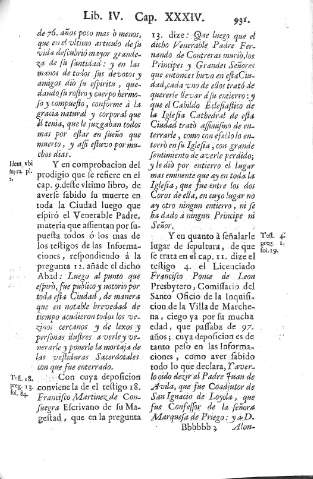 Lib. IV. Cap. XXXIV. 931.
de 76. años poco mas ò menos,
que en el ultimo articulo de su
vida descubriò mayor grande-
za de su santidad: y en las
manos de todos sus devotos y
amigos diò su espiritu, que-
dando su rostro y cuerpo hermo-
so y compuesto, conforme à la
gracia natural y corporal que
èl tenia, que le juzgaban todos
mas por estar en sueño que
muerto, y assi estuvo por mu-
chos dias.
Y en comprobacion del
prodigio que se refiere en el
cap. 9. deste vltimo libro, de
averse sabido su muerte en
toda la Ciudad luego que
espirò el Venerable Padre,
materia que assientan por su-
puesta todos ò los mas de
los testigos de las Informa-
ciones, respondiendo à la
pregunta 12. añade el dicho
Abad: Luego al punto que
espirò, fue publico y notorio por
toda esta Ciudad, de manera
que en notable brevedad de
tiempo acudieron todos los ve-
zinos cercanos y de lexos y
personas ilustres à verle y ve-
nerarle y ponerle la mortaja de
las vestiduras Sacerdotales
con que fue enterrado.
Con cuya deposicion
conviene la de el testigo 18.
Francisco Martinez de Con-
suegra Escrivano de su Ma-
gestad, que en la pregunta
Ident vbi
supra pr.
Test. 18.
preg. 13.
fol. 84.
13. dize: Que luego que el
dicho Venerable Padre Fer-
nando de Contreras murio, los
Principes y Grandes Señores
que entonces huvo en esta Ciu-
dad, cada vno de ellos tratò de
quererle llevar à su entierro; y
que el Cabildo Eclesiastico de
la Iglesia Cathedral de esta
Ciudad tratò assimismo de en-
terrarle, como con efecto lo en-
terrò en su Iglesia, con grande
sentimiento de averle perdido;
y le diò por entierro el lugar
mas eminente que ay en toda la
Iglesia, que fue entre los dos
Coros de ella, en cuyo lugar no
ay otro ningun entierro, ni se
ha dado à ningun Principe ni
Señor.
Y en quanto à señalarle
lugar de sepultura, de que
se trata en el cap. 11. dize el
testigo 4. el Licenciado
Francisco Ponce de Leon
Presbytero, Comissario del
Santo Oficio de la Inquisi-
cion de la Villa de Marche-
na, ciego ya por su mucha
edad, que passaba de 97.
años; cuya deposicion es de
tanto peso en las Informa-
ciones, como aver sabido
todo lo que declara, Y aver-
lo oido dezir al Padre Juan de
Avila, que fue Coadjutor de
San Ignacio de Loyola, que
fue Confessor de la señora
Marquesa de Priego: y à D.
Test. 4.
preg. 1.
fol. 19.
Bbbbbb 2 Alon-